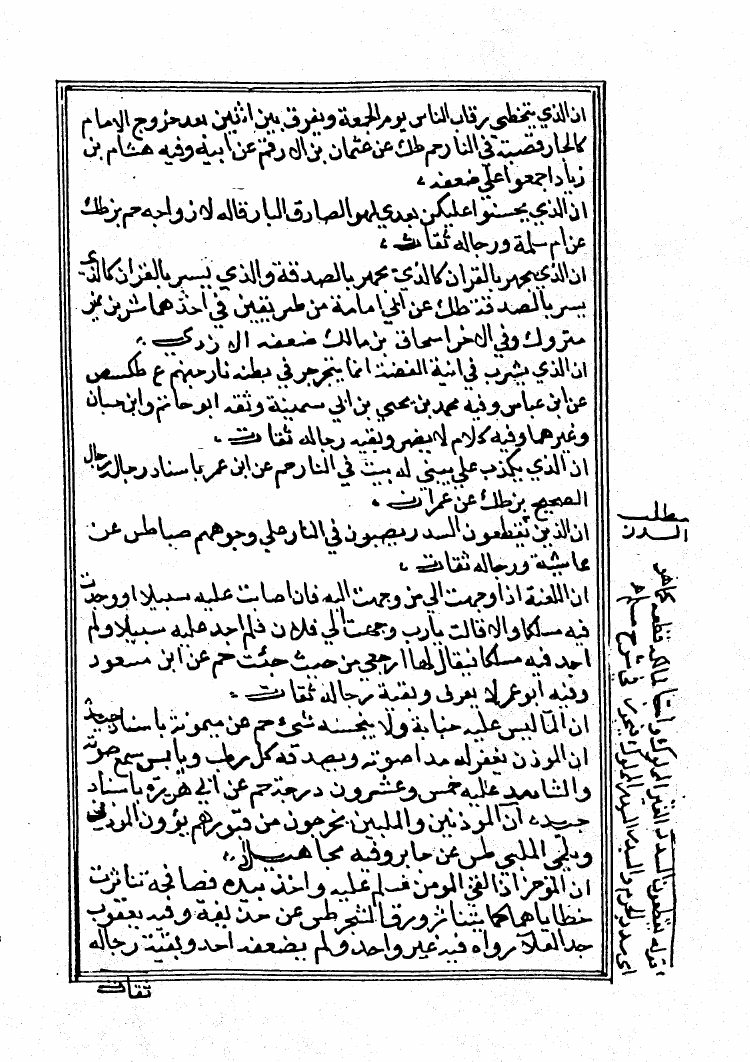 ان الذي يتخطى رقاب الناس يوم الجمعة ويفرق بين اثنين بعد خروج الامام
كالجار قصبه في النار حم طك عن عثمان بن الارقم عن ابيه وفيه هشام بن
زياد اجمعوا على ضعفه
ان الذي يحسنوا عليكن بعدي لهو الصادق البار قاله لازواجه حم بز طك
عن ام سلمة ورجاله ثقات
ان الذي يجهر بالقران كالذي يجهر بالصدقة والذي يسر بالقران كالذي
يسر بالصدقة طك عن ابي امامة من طريقين في احدهما بشر بن نمير
متروك وفي الاخر اسحاق بن مالك ضعفه الازدي
ان الذي يشرب في انية الفضة انما يجرجر في بطنه نار جهنم ع طكسص
عن ابن عباس وفيه محمد بن يحيى بن ابي سمينة وثقه ابو حاتم وابن حبان
وغيرهما وفيه كلام لا يضر وبقيه رجاله ثقات
ان الذي يكذب علي يبني له بيت في النار حم عن ابن عمر باسناد رجاله رجال
الصحيح بز طك عن عمران
ان الذين يقطعون السدر يصبون في النار على وجوههم صبا طس عن
عايشة ورجاله ثقات
ان اللعنة اذا وجهت الى من وجهت اليه فان اصابت عليه سبيلا او وجدت
فيه مسلكا والا قالت يا رب وجهت الى فلان فلم اجد عليه سبيلا ولم
اجد فيه مسلكا فيقال لها ارجعي من حيث جئت حم عن ابن مسعود
وفيه ابو عمر لا يعرف وبقية رجاله ثقات
ان الما ليس عليه جنابة ولا ينجسه شيء حم عن ميمونة باسناد جيد
ان الموذن يغفر له مدا صوته ويصدقه كل رطب ويابس سمع صوته
والشاهد عليه خمس وعشرون درجة حم عن ابي هريرة باسناد
جيد ان الموذنين والملبين يخرجون من قبورهم يؤذن الموذن
ويلبي الملبي طس عن جابر وفيه مجاهيل
ان المؤمن اذا لقي المومن فسلم عليه واخذ بيده فصافحه تناثرت
خطاياهما كما يتناثر ورق الشجر طس عن حذيفة وفيه يعقوب
رواه فيه غير واحد ولم يضعفه احد وبقية رجاله
ثقات
مطلب
السدر
قوله يقطعون السدر